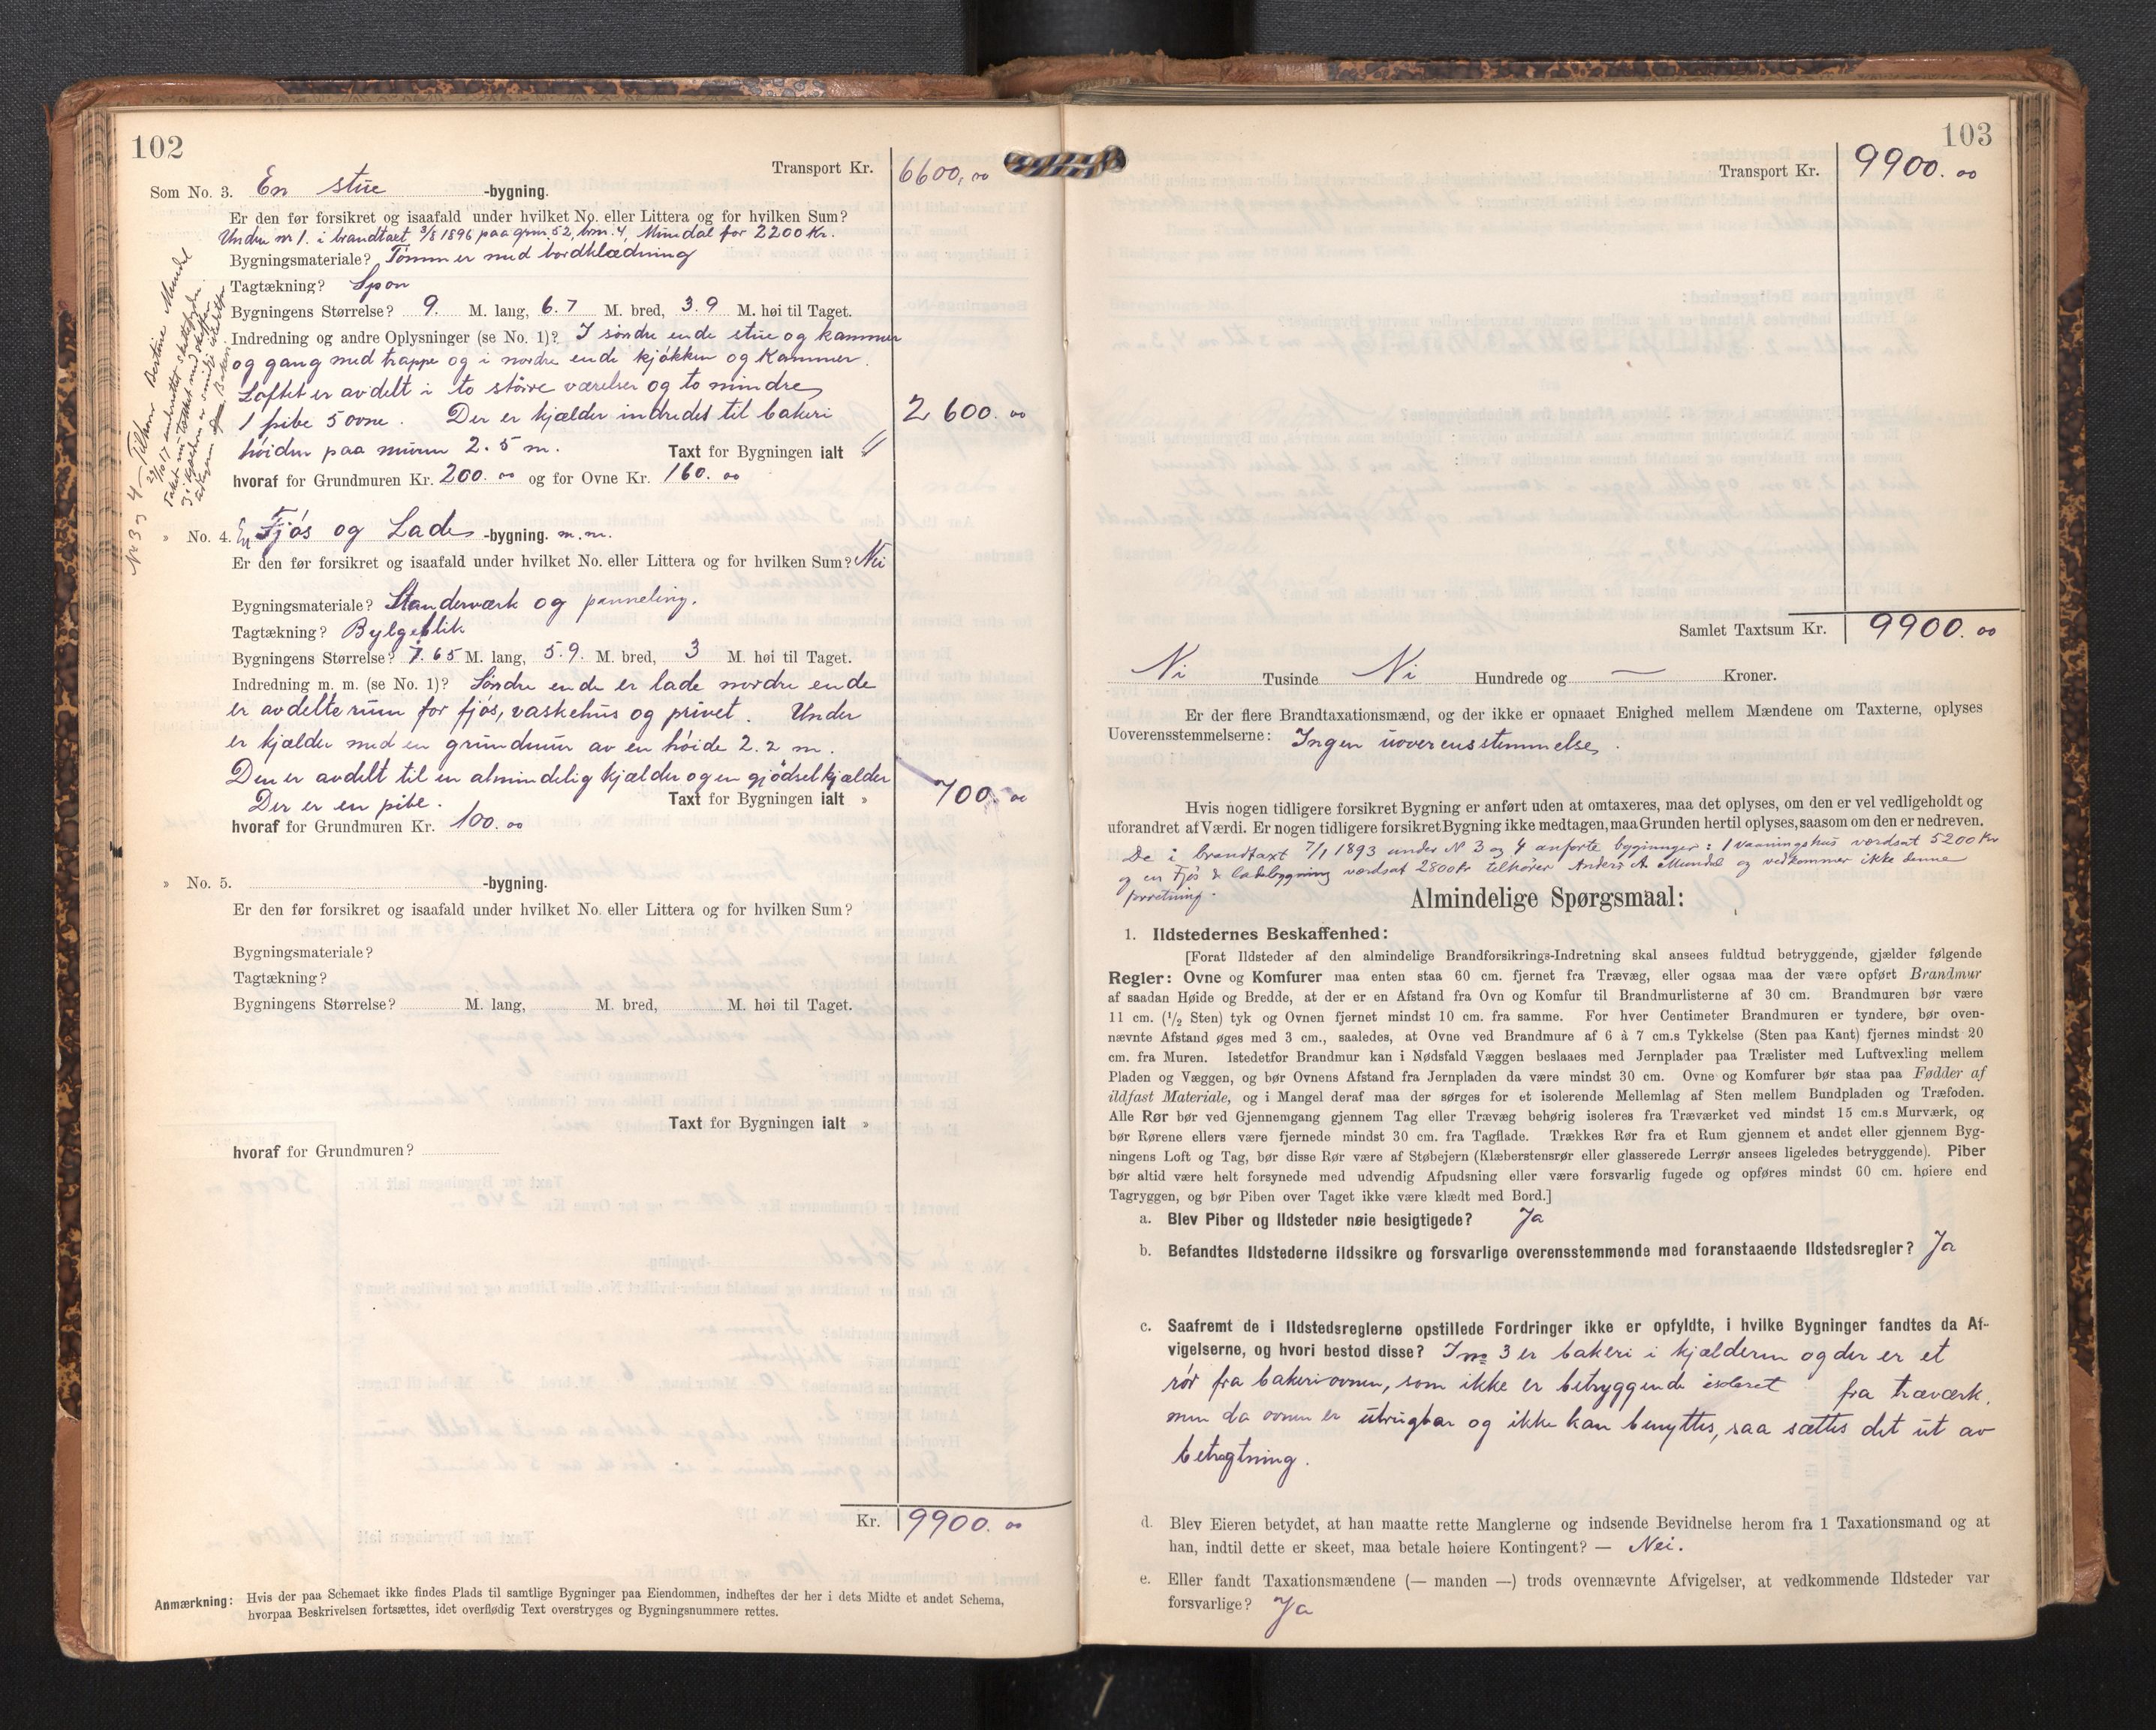 102
Transport Kr. 6600,00
Som No. 3. En stue -bygning.
Er den før forsikret og isaafald under hvilket No. eller Littera og for hvilken Sum?
Under nr 1. i brandtaxt 3/8 1896 paa grn. 52, brn. 4, Mundal for 2200 Kr.
Bygningsmateriale? Tømmer med bordklædning
Tagtækning? Spon
Bygningens Størrelse? 9. M. lang, 6.7 M. bred, 3.9 M. høi til Taget.
Indredning og andre Oplysninger (se No. 1)? I søndre ende stue og kammer
og gang med trappe og i nordre ende kjøkken og kammer.
Loftet er avdelt i to større værelser og to mindre
1 pibe 5 ovne. Der er kjælder indredet til bakeri 2600.00
høiden paa muren 2.5 m. Taxt for Bygningen ialt "
hvoraf for Grundmuren Kr. 200.00 og for Ovne Kr. 160.00
Nr 3 og 4 – Tilhører Mundal
" No. 4. En Fjøs og Lade -bygning. m.m.
Er den før forsikret og isaafald under hvilket No. eller Littera og for hvilken Sum? Nei
Bygningsmateriale? Standerværk og panneling.
Tagtækning? Bylgeblik
Bygningens Størrelse? 7.65 M. lang, 5.9 M. bred, 3 M. høi til Taget.
Indredning m. m. (se No. 1)? Søndre ende er lade nordre ende
er avdelte rum for fjøs, vaskehus og privet. Under
er kjælder med en grundmur av en høide 2.2 m.
Den er avdelt til en almindelig kjælder og en gjødselkjælder
Der er en pibe. Taxt for Bygningen ialt " 700.00
hvoraf for Grundmuren Kr. 100.00
" No. 5. -bygning.
Er den før forsikret og isaafald under hvilket No. eller Littera og for hvilken Sum?
Bygningsmateriale?
Tagtækning?
Bygningens Størrelse? M. lang, M. bred, M. høi til Taget.
Taxt for Bygningen ialt "
hvoraf for Grundmuren?
Kr. 9900.00
Anmærkning: Hvis der paa Schemaet ikke findes Plads til samtlige Bygninger paa Eiendommen, indheftes der her i dets Midte et andet Schema,
hvorpaa Beskrivelsen fortsættes, idet overflødig Text overstryges og Bygningsnummere rettes.
103
Transport Kr. 9900.00
Samlet Taxtsum Kr. 9900.00
Ni Tusinde Ni Hundrede og — Kroner.
Er der flere Brandtaxationsmænd, og der ikke er opnaaet Enighed mellem Mændene om Taxterne, oplyses
Uoverensstemmelserne: Ingen uoverensstemmelse.
Hvis nogen tidligere forsikret Bygning er anført uden at omtaxeres, maa det oplyses, om den er vel vedligeholdt og
uforandret af Værdi. Er nogen tidligere forsikret Bygning ikke medtagen, maa Grunden hertil oplyses, saasom om den er nedreven.
De i brandtaxt 7/1 1893 under N 3 og 4 anførte bygninger: 1 vaaningshus værdsat 5200 Kr
og en Fjøs & ladebygning værdsat 2800 kr tilhører Anders A. Mundal og vedkommer ikke denne
forretning.
Almindelige Spørgsmaal:
1. Ildstedernes Beskaffenhed:
[Forat Ildsteder af den almindelige Brandforsikrings-Indretning skal ansees fuldtud betryggende, gjælder følgende
Regler: Ovne og Komfurer maa enten staa 60 cm. fjernet fra Trævæg, eller ogsaa maa der være opført Brandmur
af saadan Høide og Bredde, at der er en Afstand fra Ovn og Komfur til Brandmurlisterne af 30 cm. Brandmuren bør være
11 cm. (1/2 Sten) tyk og Ovnen fjernet mindst 10 cm. fra samme. For hver Centimeter Brandmuren er tyndere, bør oven-
nævnte Afstand øges med 3 cm., saaledes, at Ovne ved Brandmure af 6 à 7 cm.s Tykkelse (Sten paa Kant) fjernes mindst 20
cm. fra Muren. Istedetfor Brandmur kan i Nødsfald Væggen beslaaes med Jernplader paa Trælister med Luftvexling mellem
Pladen og Væggen, og bør Ovnens Afstand fra Jernpladen da være mindst 30 cm. Ovne og Komfurer bør staa paa Fødder af
ildfast Materiale, og i Mangel deraf maa der sørges for et isolerende Mellemlag af Sten mellem Bundpladen og Træfoden.
Alle Rør bør ved Gjennemgang gjennem Tag eller Trævæg behørig isoleres fra Træværket ved mindst 15 cm.s Murværk, og
bør Rørene ellers være fjernede mindst 30 cm. fra Tagflade. Trækkes Rør fra et Rum gjennem et andet eller gjennem Byg-
ningens Loft og Tag, bør disse Rør være af Støbejern (Klæberstensrør eller glasserede Lerrør ansees ligeledes betryggende). Piber
bør altid være helt forsynede med udvendig Afpudsning eller være forsvarlig fugede og opføres mindst 60 cm. høiere end
Tagryggen, og bør Piben over Taget ikke være klædt med Bord.]
a. Blev Piber og Ildsteder nøie besigtigede? Ja
b. Befandtes Ildstederne ildssikre og forsvarlige overensstemmende med foranstaaende Ildstedsregler? Ja
c. Saafremt de i Ildstedsreglerne opstillede Fordringer ikke er opfyldte, i hvilke Bygninger fandtes da Af-
vigelserne, og hvori bestod disse? I no 3 er bakeri i kjælderen og der er et
rør fra bakeriovnen, som ikke er betryggende isoleret fra træværk,
men da ovnen er ubrugbar og ikke kan benyttes, saa sættes det ut av
betragtning.
d. Blev Eieren betydet, at han maatte rette Manglerne og indsende Bevidnelse herom fra 1 Taxationsmand og at
han, indtil dette er skeet, maa betale høiere Kontingent? — Nei.
e. Eller fandt Taxationsmændene (— manden —) trods ovennævnte Afvigelser, at vedkommende Ildsteder var
forsvarlige? Ja